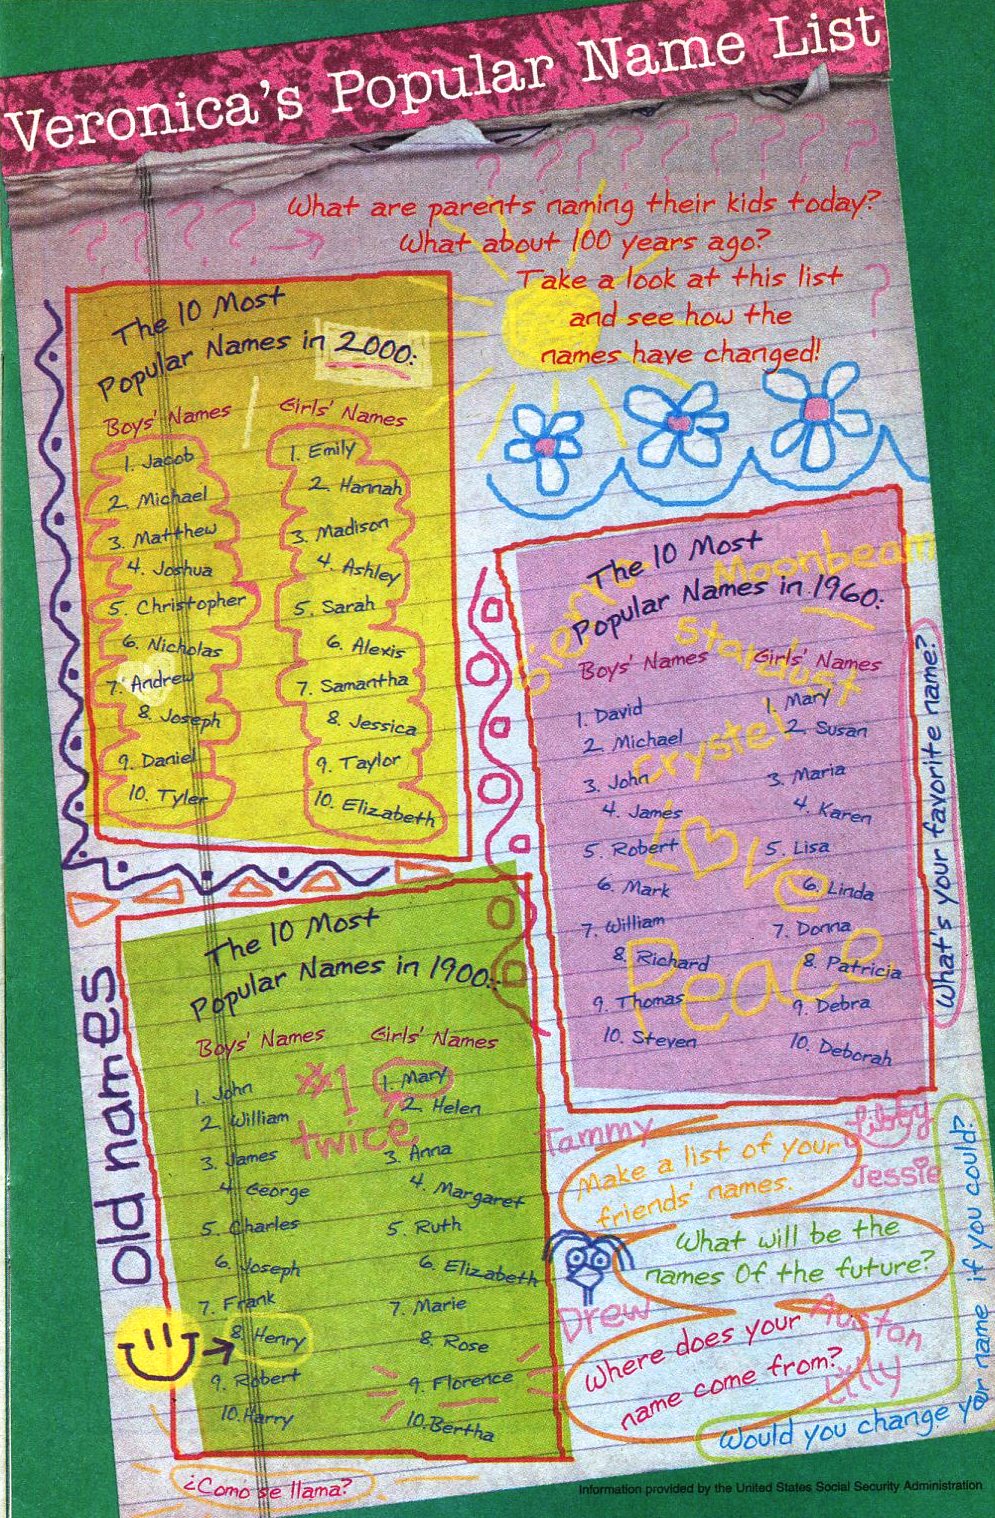 Veronica's Popular Name List
What are parents naming their kids today?
What about 100 years ago?
Take a look at this list
and see how the
names have changed!
The 10 Most
Popular Names in 2000:
Boys' Names Girls' Names
1. Jacob 1. Emily
2. Michael 2. Hannah
3. Matthew 3. Madison
4. Joshua 4. Ashley
5. Christopher 5. Sarah
6. Nicholas 6. Alexis
7. Andrew 7. Samantha
8. Joseph 8. Jessica
9. Daniel 9. Taylor
10. Tyler 10. Elizabeth
The 10 Most
Popular Names in 1960:
Boys' Names Girls' Names
1. David 1. Mary
2. Michael 2. Susan
3. John 3. Maria
4. James 4. Karen
5. Robert 5. Lisa
6. Mark 6. Linda
7. William 7. Donna
8. Richard 8. Patricia
9. Thomas 9. Debra
10. Steven 10. Deborah
Moonbeam
Stardust
Crystel
Love
Peace
What's your favorite name?
old names
The 10 Most
Popular Names in 1900:
Boys' Names Girls' Names
1. John 1. Mary
2. William 2. Helen
3. James 3. Anna
4. George 4. Margaret
5. Charles 5. Ruth
6. Joseph 6. Elizabeth
7. Frank 7. Marie
8. Henry 8. Rose
9. Robert 9. Florence
10. Harry 10. Bertha
#1
twice
Tammy
Libby
Jessie
Make a list of your
friends' names.
What will be the
names Of the future?
Drew
Auston
Where does your
name come from?
Would you change your name if you could?
¿Como se llama?
Information provided by the United States Social Security Administration